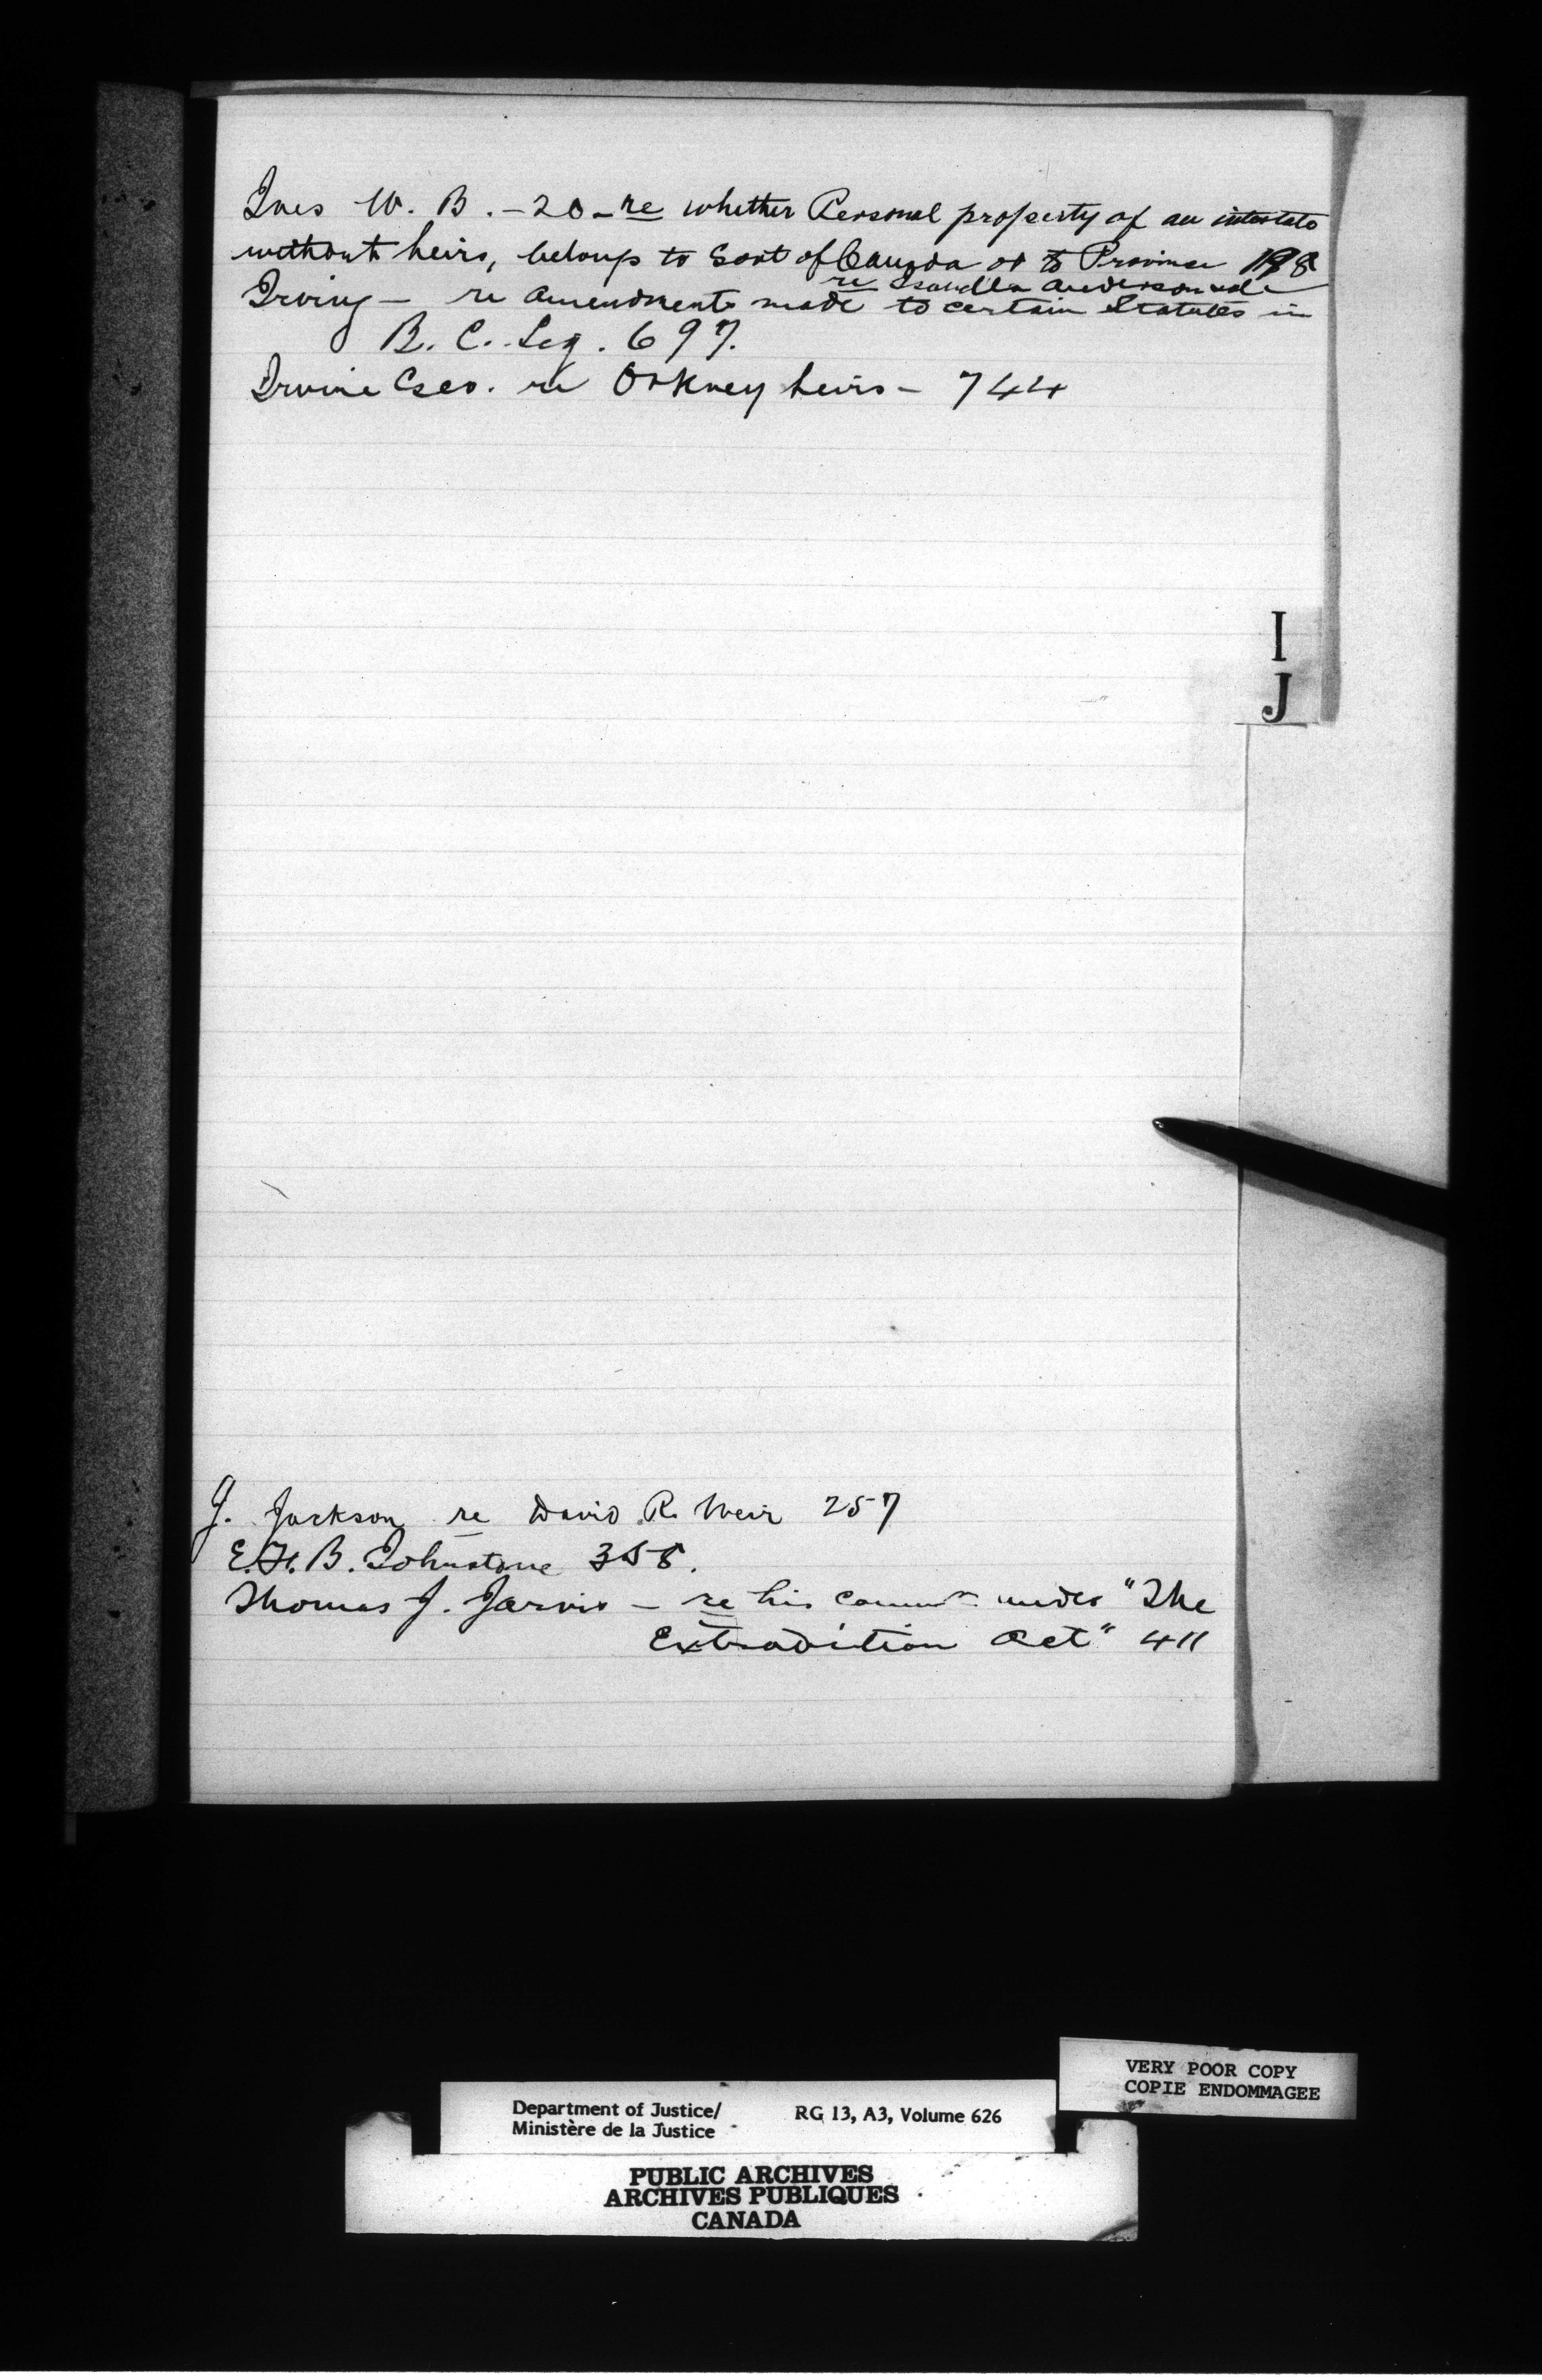 Ives W. B. - 20 - re whether Personal property of an intestate
without heirs, belongs to Govt of Canada or to Province 198
re Isabella Anderson
Irving - re amendments made to certain Statutes in
B. C. Leg. 697.
Irvine Geo. re Orkney heirs - 744
I
J
J. Jackson re David R. Weir 257
E. F. B. Johnstone 358.
Thomas J. Jarvis - re his commn under "The
Extradition Act" 411
VERY POOR COPY
COPIE ENDOMMAGEE
Department of Justice/ RG 13, A3, Volume 626
Ministère de la Justice
PUBLIC ARCHIVES
ARCHIVES PUBLIQUES
CANADA